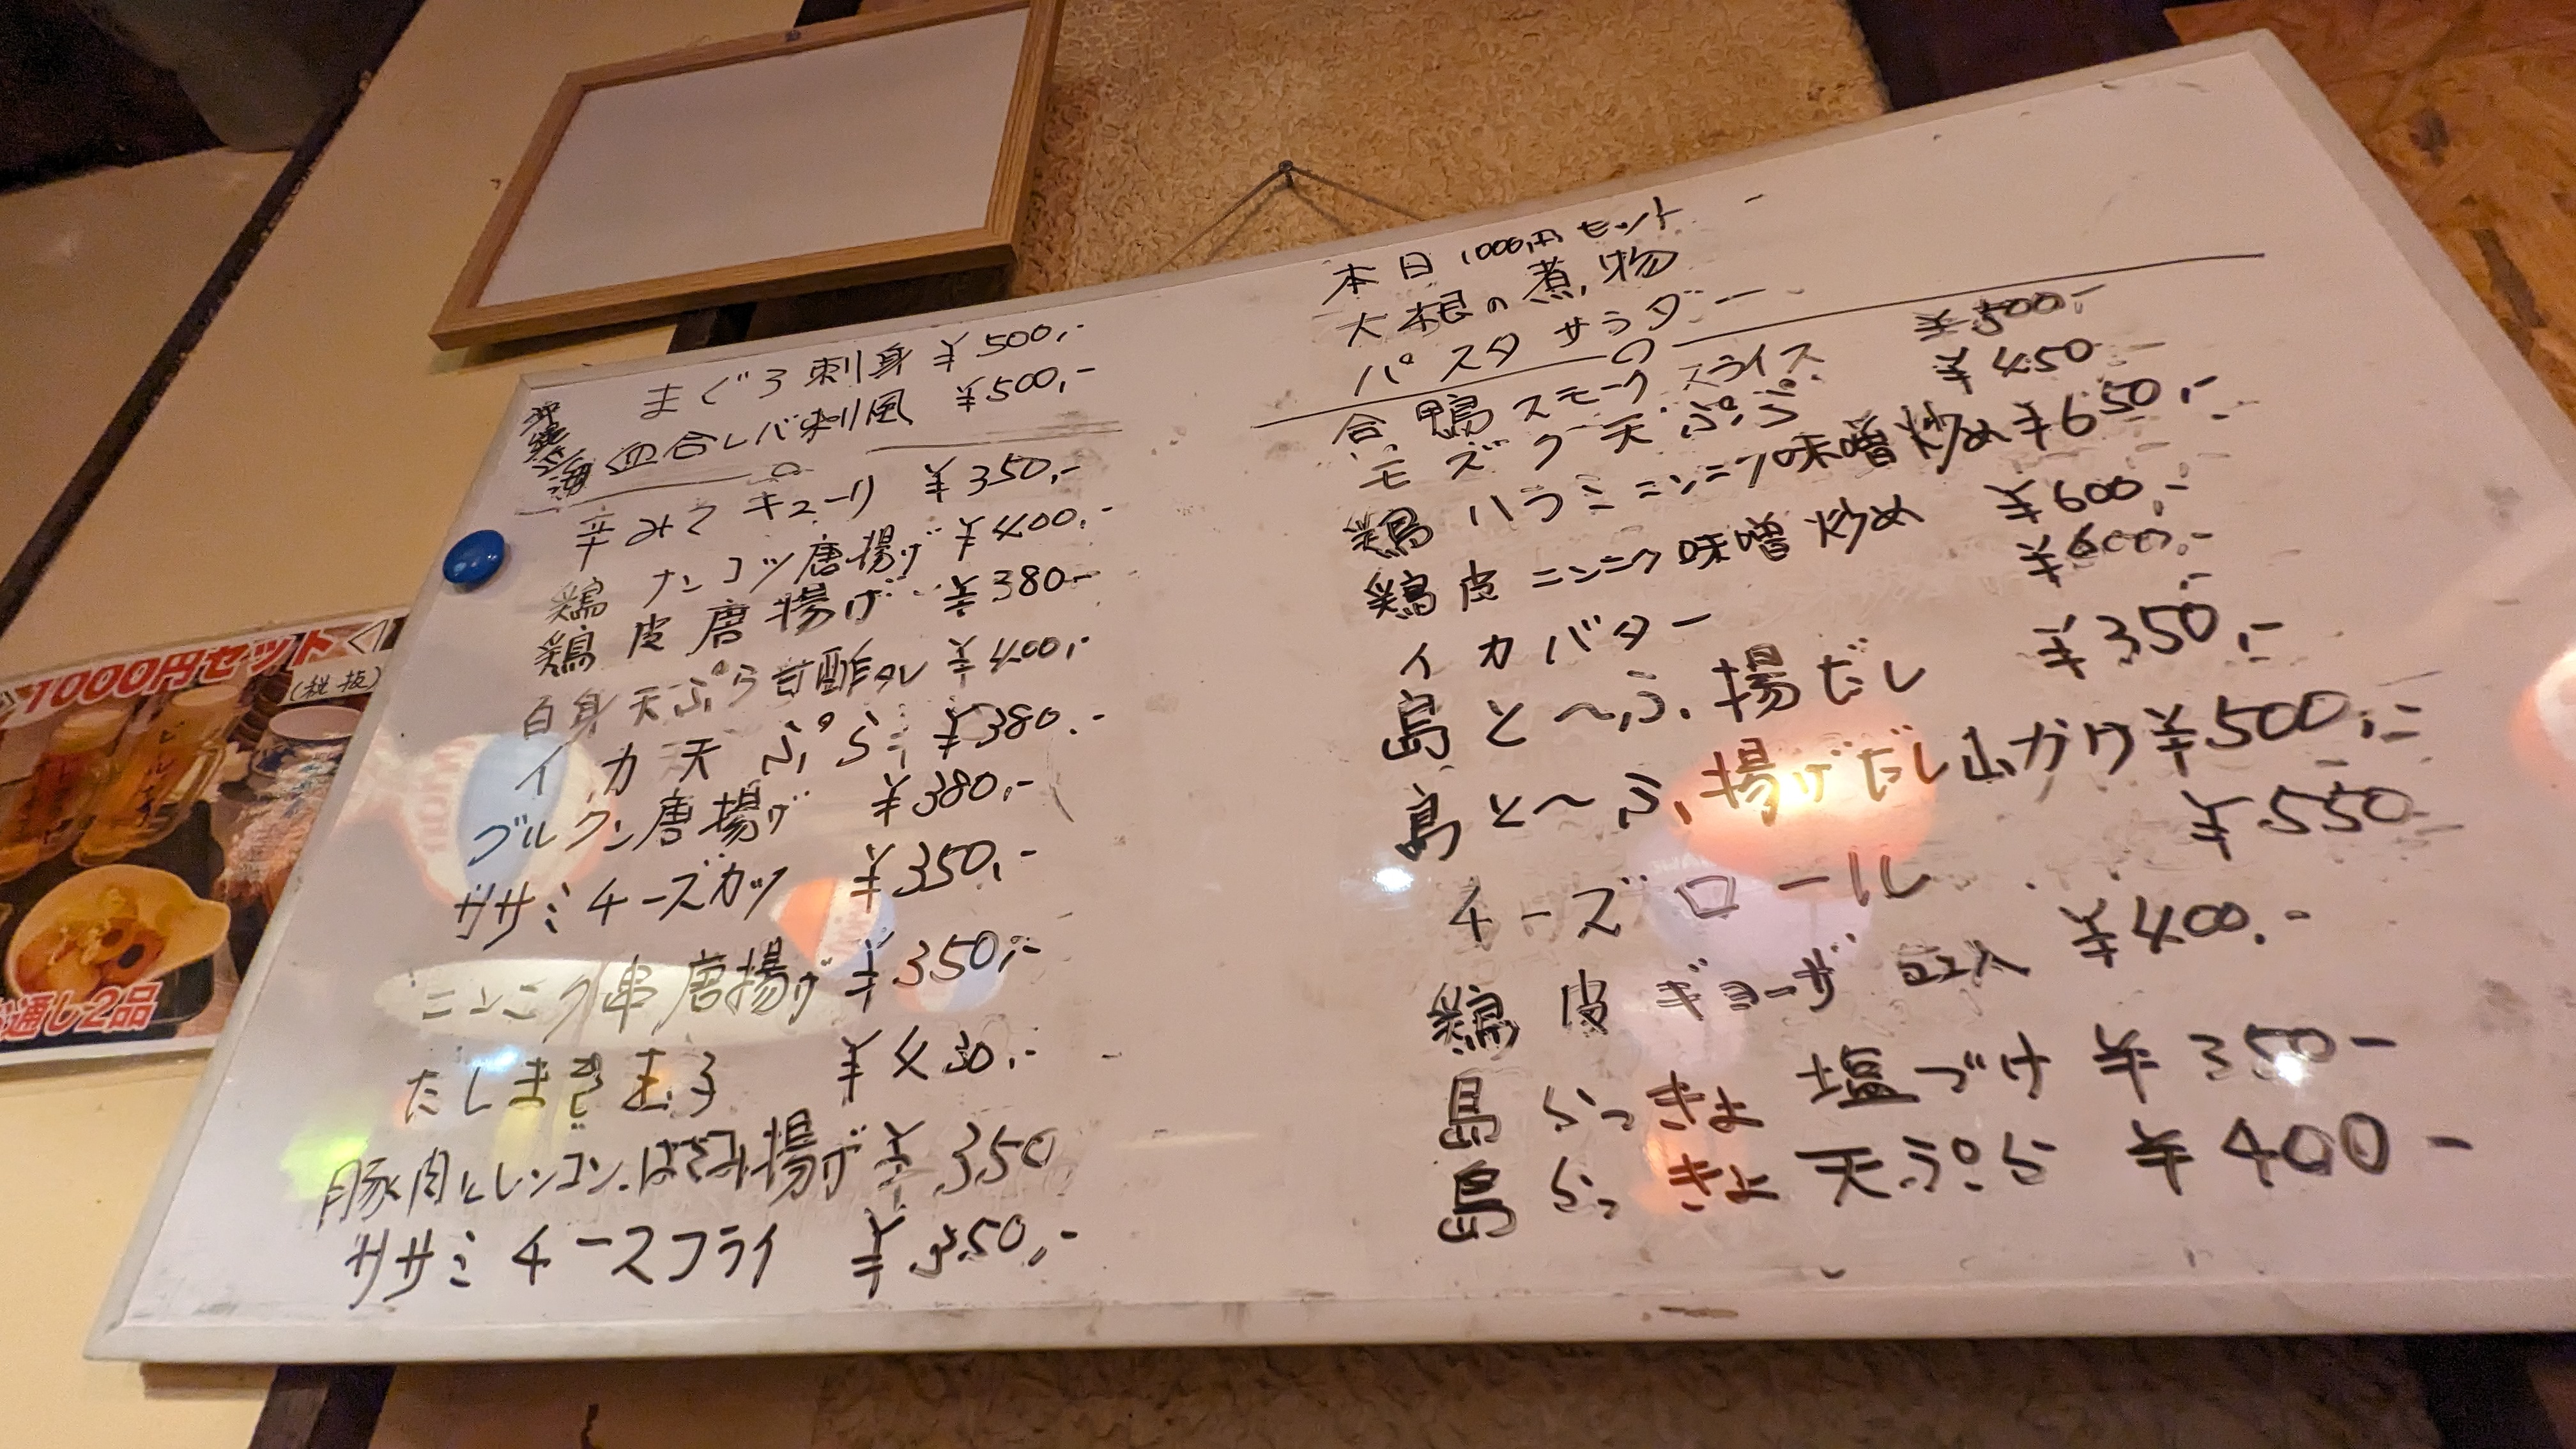 まぐろ刺身 ¥500,-
血合レバ刺風 ¥500,-
辛みそキューリ ¥350,-
鶏ナンコツ唐揚げ ¥400,-
鶏皮唐揚げ ¥380-
白身天ぷら甘酢タレ ¥400,-
イカ天ぷら ¥380,-
グルクン唐揚げ ¥380,-
ササミチーズカツ ¥350,-
ニンニク串唐揚げ ¥350,-
だしまき玉子
豚肉とレンコンはさみ揚げ ¥350
ササミチースフライ ¥350,-
本日1000円セット
大根の煮物
パスタサラダー
合鴨スモークスライス ¥500,-
モズク天ぷら ¥450
鶏ハラミニンニク味噌炒め ¥650,-
鶏皮ニンニク味噌炒め ¥600,-
イカバター ¥600,-
島と〜ふ揚だし ¥350,-
島と〜ふ揚げだし山かけ ¥500,-
チーズロール ¥550
鶏皮ギョーザ ¥400,-
島らっきょ塩づけ ¥350-
島らっきょ天ぷら ¥400-
1000円セット
(税抜)
通し2品